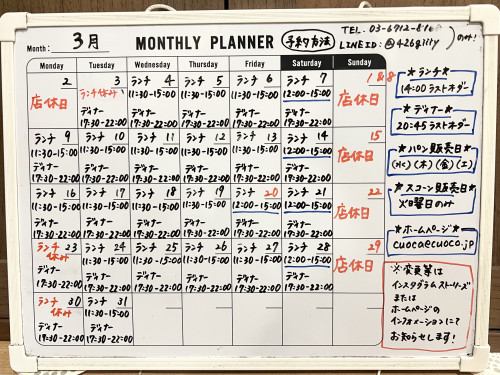 Month: 3月
MONTHLY PLANNER
予約方法
TEL.
LINE ID:
のみ!
Monday Tuesday Wednesday Thursday Friday Saturday Sunday
2
店休日
3
ランチ休み
ディナー
17:30-22:00
ランチ 4
11:30-15:00
ディナー
17:30-22:00
ランチ 5
11:30-15:00
ディナー
17:30-22:00
ランチ 6
11:30-15:00
ディナー
17:30-22:00
ランチ 7
12:00-15:00
ディナー
17:30-22:00
1&8
店休日
ランチ 9
11:30-15:00
ディナー
17:30-22:00
ランチ 10
11:30-15:00
ディナー
17:30-22:00
ランチ 11
11:30-15:00
ディナー
17:30-22:00
ランチ 12
11:30-15:00
ディナー
17:30-22:00
ランチ 13
11:30-15:00
ディナー
17:30-22:00
ランチ 14
12:00-15:00
ディナー
17:30-22:00
15
店休日
ランチ 16
11:30-15:00
ディナー
17:30-22:00
ランチ 17
11:30-15:00
ディナー
17:30-22:00
ランチ 18
11:30-15:00
ディナー
17:30-22:00
ランチ 19
11:30-15:00
ディナー
17:30-22:00
ランチ 20
12:00-15:00
ディナー
17:30-22:00
ランチ 21
12:00-15:00
ディナー
17:30-22:00
22
店休日
ランチ 23
休み
ディナー
17:30-22:00
ランチ 24
11:30-15:00
ディナー
17:30-22:00
ランチ 25
11:30-15:00
ディナー
17:30-22:00
ランチ 26
11:30-15:00
ディナー
17:30-22:00
ランチ 27
11:30-15:00
ディナー
17:30-22:00
ランチ 28
12:00-15:00
ディナー
17:30-22:00
29
店休日
ランチ 30
休み
ディナー
17:30-22:00
ランチ 31
11:30-15:00
ディナー
17:30-22:00
*ランチ*
14:00ラストオーダー
*ディナー*
20:45ラストオーダー
*パン販売日*
(水)(木)(金)(土)
*スコーン販売日
火曜日のみ
*ホームページ*
cuoca@cuoco.jp
※変更等は
インスタグラムストーリーズ
または
ホームページの
インフォメーションにて
お知らせします!